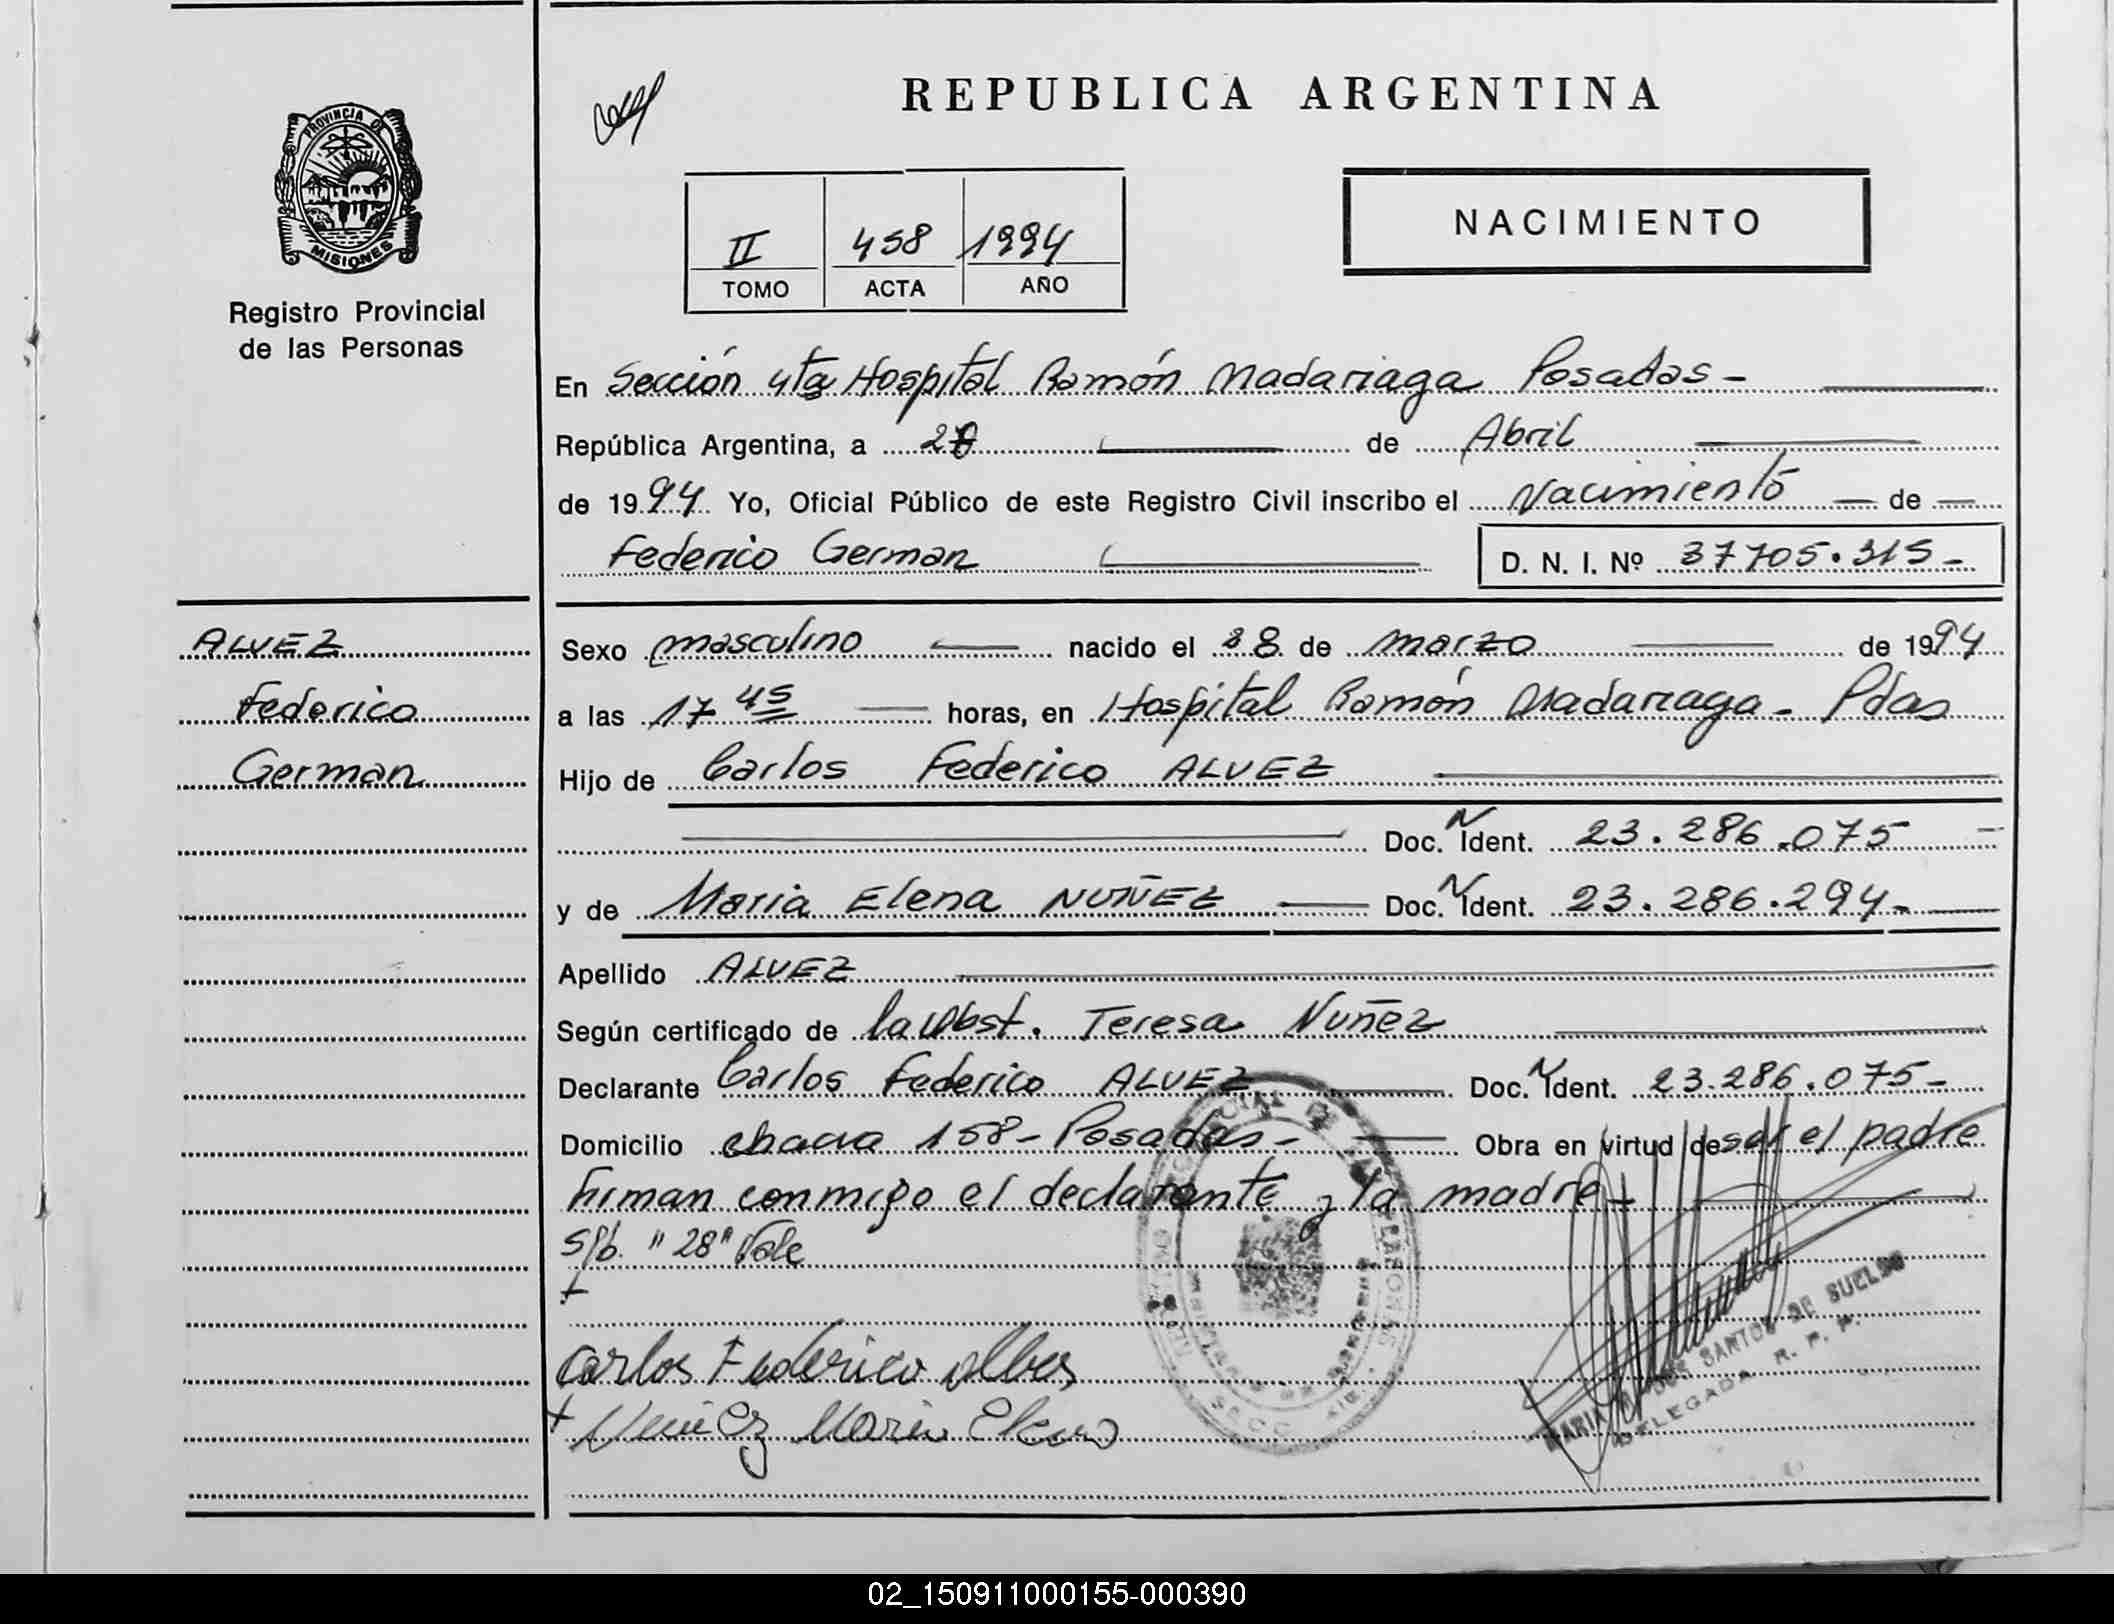 PROVINCIA DE
MISIONES
Registro Provincial
de las Personas
ALVEZ
Federico
German
REPUBLICA ARGENTINA
NACIMIENTO
II 458 1994
TOMO ACTA AÑO
En Sección 4ta Hospital Ramón Madariaga Posadas-
República Argentina, a de Abril
de 1994 Yo, Oficial Público de este Registro Civil inscribo el Nacimiento de
Federico German D. N. I. Nº 37705.315-
Sexo masculino nacido el 28 de marzo de 1994
a las 17 45 horas, en Hospital Ramón Madariaga- Pdas
Hijo de Carlos Federico ALVEZ
Doc. N Ident. 23.286.075
y de Maria Elena NUÑEZ Doc. N Ident. 23.286.294-
Apellido ALVEZ
Según certificado de la Obst. Teresa Nuñez
Declarante Carlos Federico ALVEZ Doc. N Ident. 23.286.075-
Domicilio chacra 158- Posadas- Obra en virtud de ser el padre
firman conmigo el declarante y la madre-
S/b. "28" Vale
+
Carlos Federico Albes
+ Nuñez Maria Elena
DOS SANTOS DE SUELDO
DELEGADA R. P. P.
02_150911000155-000390